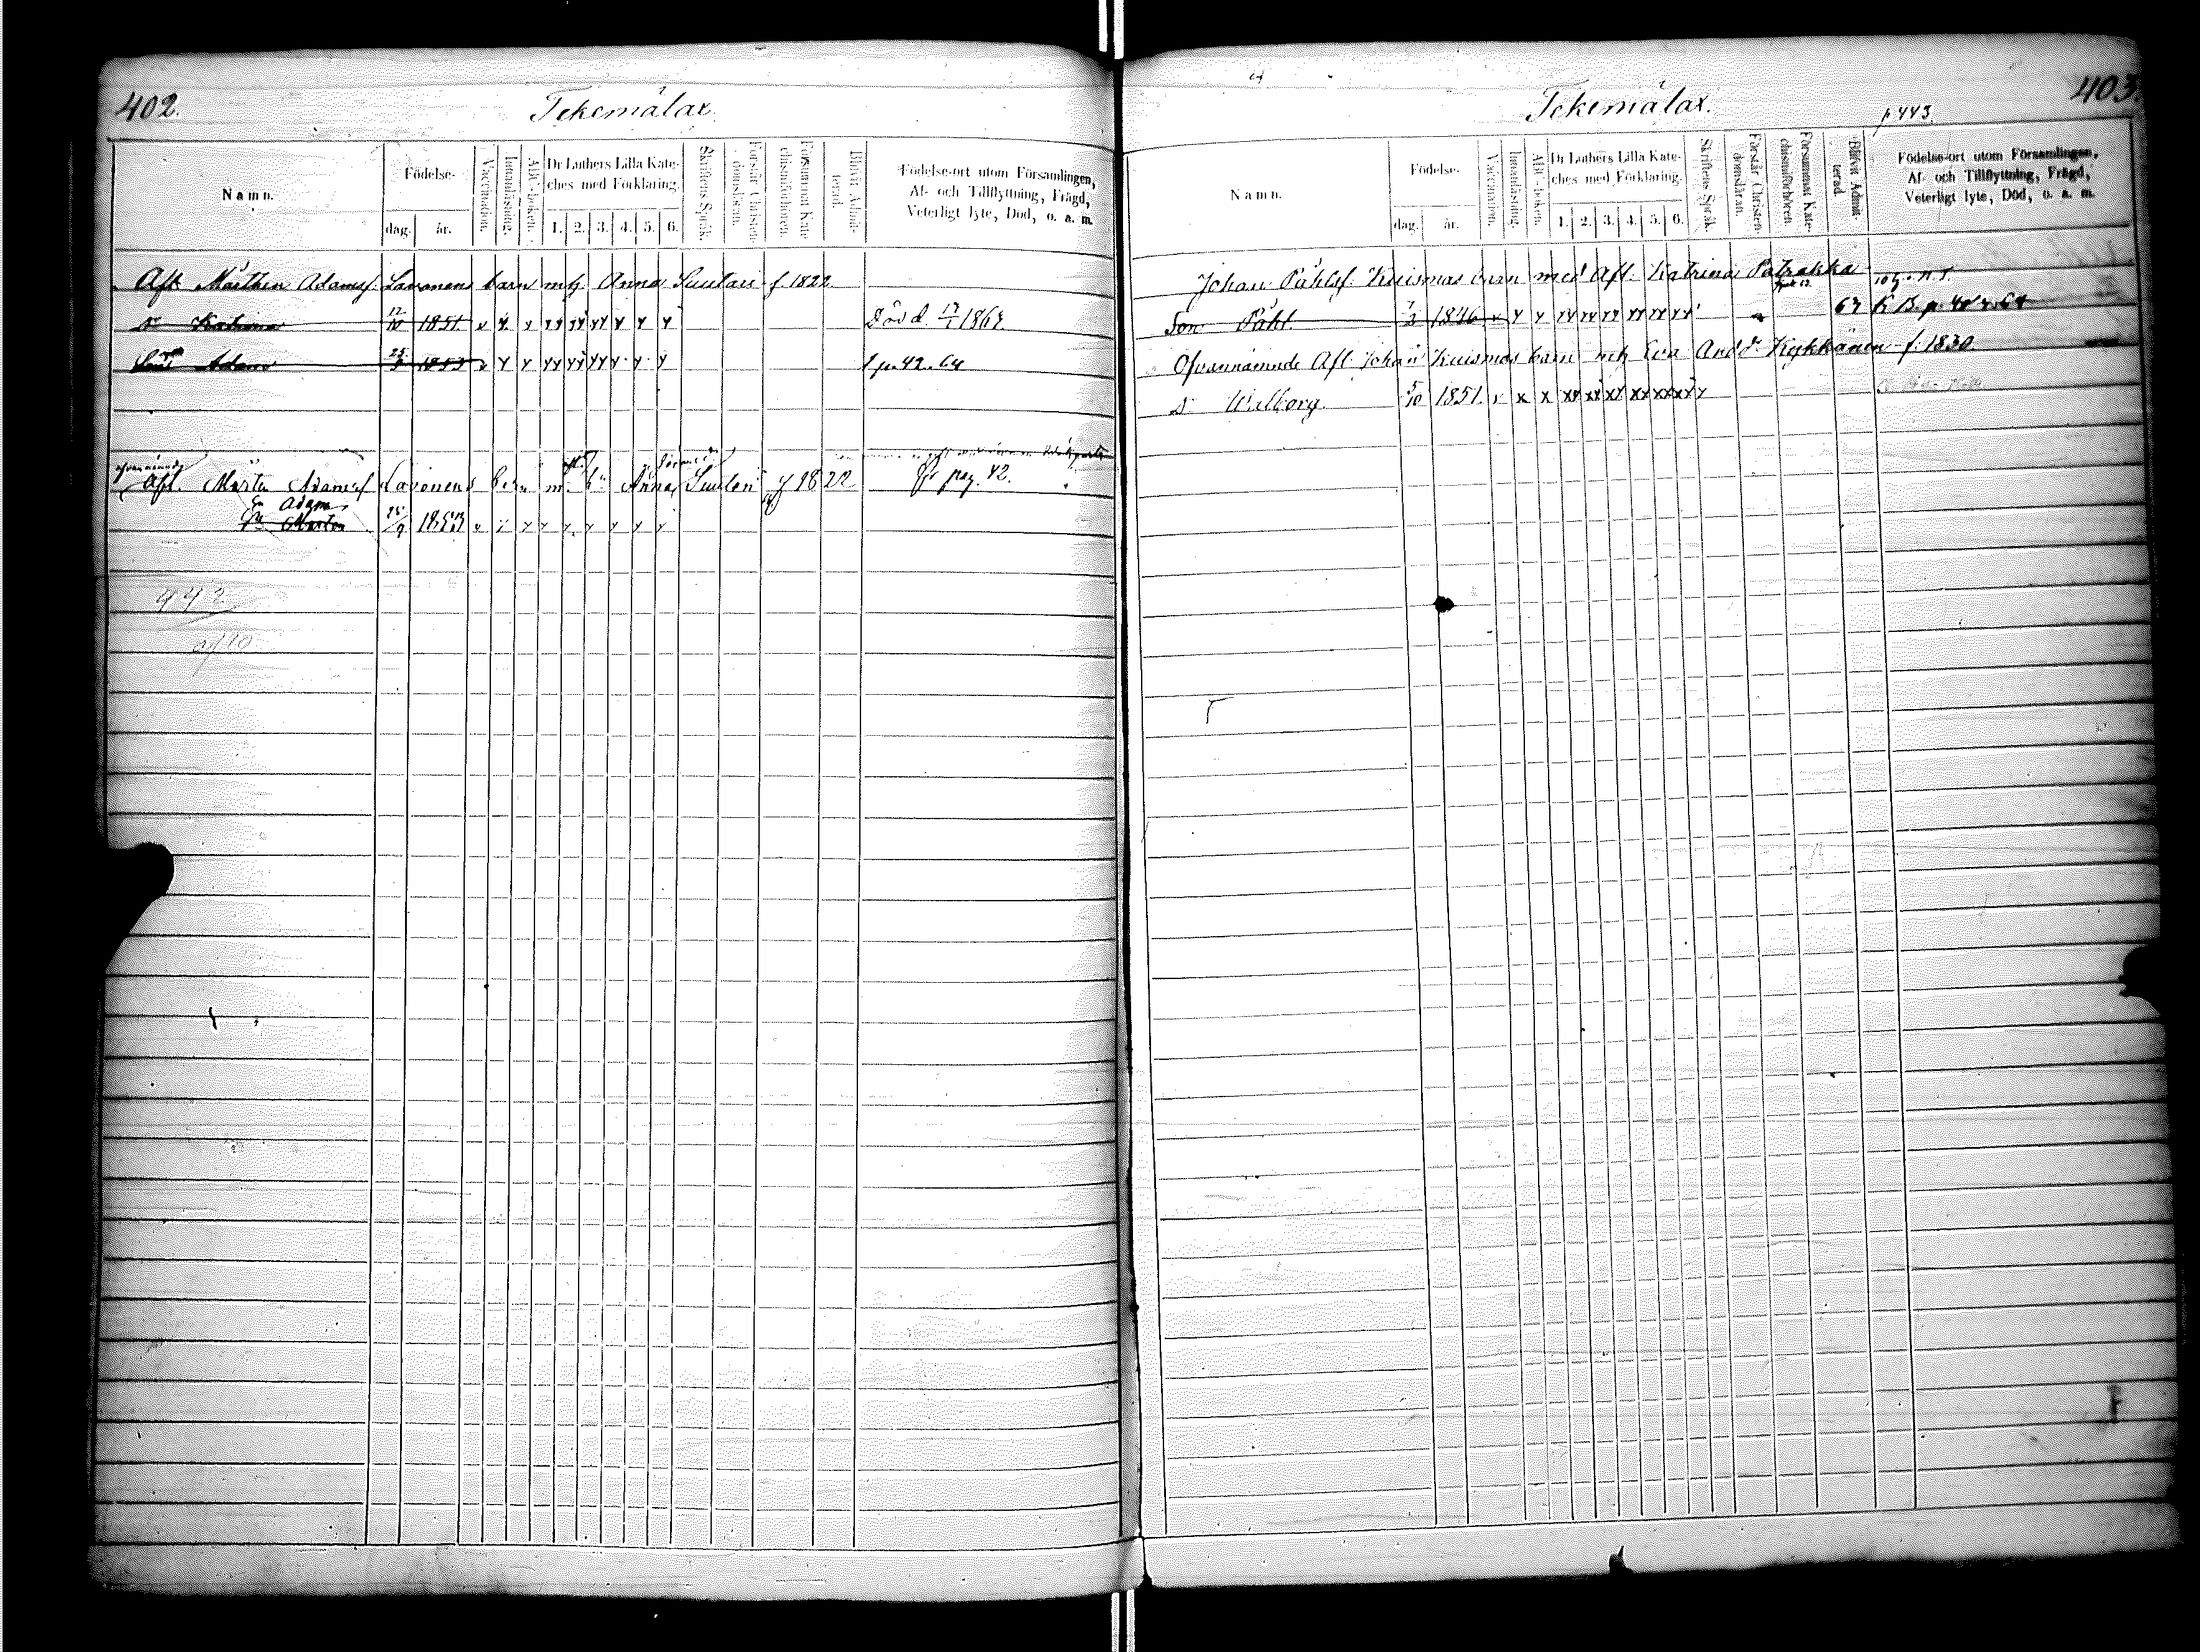 402.
Tekemälax.
Namn.
Födelse-
dag. år.
Vaccination.
Innanläsning.
ABC-boken.
Dr Luthers Lilla Kate-
ches med Förklaring.
1. 2. 3. 4. 5. 6.
Skriftens Språk.
Förstår Christen-
domsläran.
Försummat Kate-
chismiförhören.
Blifvit Admit-
terad.
Födelse-ort utom Församlingen,
Af- och Tillflyttning, Frägd,
Veterligt lyte, Död, o. a. m.
Afl. Mårthen Adamsf. Lavonens barn mh Anna Suutari f 1822
dr Katrina 12/10 1851. Död d. 17/1 1869
Adam 25/9 1853 p. 42. 64
Afl. Mårten Adamsf Lavonens barn m. h. Anna Suutari f 1822 pag. 42.
Adam
Mårten 25/9 1853
403.
Tekemälax.
p 443.
Namn.
Födelse-
dag. år.
Vaccination.
Innanläsning.
ABC-boken.
Dr Luthers Lilla Kate-
ches med Förklaring.
1. 2. 3. 4. 5. 6.
Skriftens Språk.
Förstår Christen-
domsläran.
Försummat Kate-
chismiförhören.
Blifvit Admit-
terad.
Födelse-ort utom Församlingen,
Af- och Tillflyttning, Frägd,
Veterligt lyte, Död, o. a. m.
Johan Påhlsf. Kuismas barn med Afl. Katrina Patrakka
Son Påhl 1846 67 K B. p.
Ofvannämnde Afl. Johan Kuismas barn mh Eva And:dr Kykkänen f. 1830
dr Walborg. 5/10 1851.